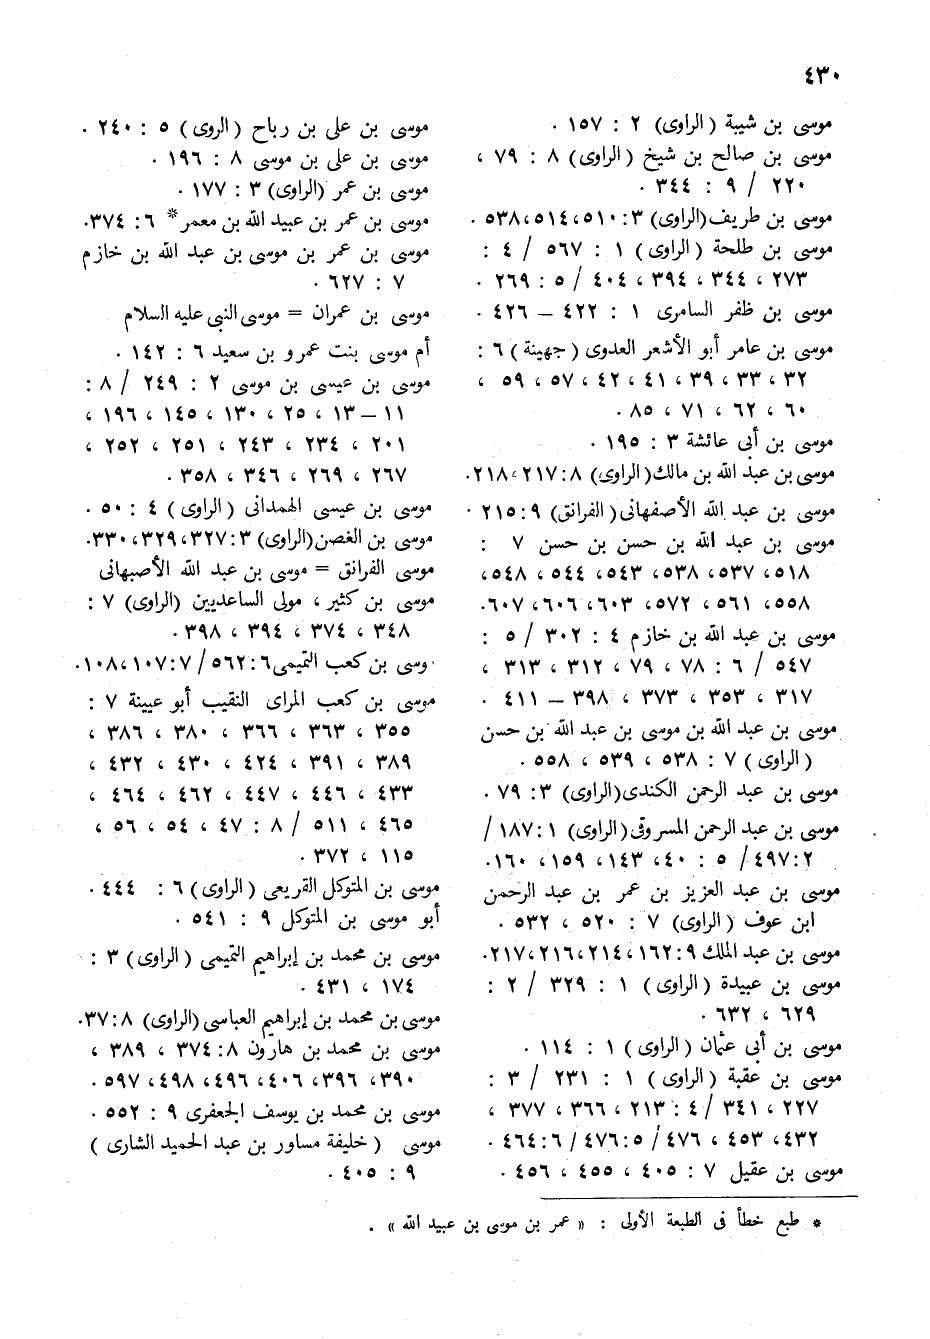 ٤٣٠
موسى بن شيبة (الراوى) ٢ : ١٥٧ .
موسى بن صالح بن شيخ (الراوى) ٨ : ٧٩ ،
٢٢٠ / ٩ : ٣٤٤ .
موسى بن طريف (الراوى) ٣ : ٥١٠ ، ٥١٤ ، ٥٣٨ .
موسى بن طلحة (الراوى) ١ : ٥٦٧ / ٤ :
٢٧٣ ، ٣٤٤ ، ٣٩٤ ، ٤٠٤ / ٥ : ٢٦٩ .
موسى بن ظفر السامرى ١ : ٤٢٢ – ٤٢٦ .
موسى بن عامر أبو الأشعر العدوى (جهينة) ٦ :
٣٢ ، ٣٣ ، ٣٩ ، ٤١ ، ٤٢ ، ٥٧ ، ٥٩ ،
٦٠ ، ٦٢ ، ٧١ ، ٨٥ .
موسى بن أبى عائشة ٣ : ١٩٥ .
موسى بن عبد الله بن مالك (الراوى) ٨ : ٢١٧ ، ٢١٨ .
موسى بن عبد الله الأصفهانى (الفرانق) ٩ : ٢١٥ .
موسى بن عبد الله بن حسن بن حسن ٧ :
٥١٨ ، ٥٣٧ ، ٥٣٨ ، ٥٤٣ ، ٥٤٤ ، ٥٤٨ ،
٥٥٨ ، ٥٦١ ، ٥٧٢ ، ٦٠٣ ، ٦٠٦ ، ٦٠٧ .
موسى بن عبد الله بن خازم ٤ : ٣٠٢ / ٥ :
٥٤٧ / ٦ : ٧٨ ، ٧٩ ، ٣١٢ ، ٣١٣ ،
٣١٧ ، ٣٥٣ ، ٣٧٣ ، ٣٩٨ – ٤١١ .
موسى بن عبد الله بن موسى بن عبد الله بن حسن
(الراوى) ٧ : ٥٣٨ ، ٥٣٩ ، ٥٥٨ .
موسى بن عبد الرحمن الكندى (الراوى) ٣ : ٧٩ .
موسى بن عبد الرحمن المسروقى (الراوى) ١ : ١٨٧ /
٢ : ٤٩٧ / ٥ : ٤٠ ، ١٤٣ ، ١٥٩ ، ١٦٠ .
موسى بن عبد العزيز بن عمر بن عبد الرحمن
ابن عوف (الراوى) ٧ : ٥٢٠ ، ٥٣٢ .
موسى بن عبد الملك ٩ : ١٦٢ ، ٢١٤ ، ٢١٦ ، ٢١٧ .
موسى بن عبيدة (الراوى) ١ : ٣٢٩ / ٢ :
٦٢٩ ، ٦٣٢ .
موسى بن أبى عثمان (الراوى) ١ : ١١٤ .
موسى بن عقبة (الراوى) ١ : ٢٣١ / ٣ :
٢٢٧ ، ٣٤١ / ٤ : ٢١٣ ، ٣٦٦ ، ٣٧٧ ،
٤٣٢ ، ٤٥٣ ، ٤٧٦ / ٥ : ٤٧٦ / ٦ : ٤٦٤ .
موسى بن عقيل ٧ : ٤٠٥ ، ٤٥٥ ، ٤٥٦ .
موسى بن على بن رباح (الروى) ٥ : ٢٤٠ .
موسى بن على بن موسى ٨ : ١٩٦ .
موسى بن عمر (الراوى) ٣ : ١٧٧ .
موسى بن عمر بن عبيد الله بن معمر * ٦ : ٣٧٤ .
موسى بن عمر بن موسى بن عبد الله بن خازم
٧ : ٦٢٧ .
موسى بن عمران = موسى النبى عليه السلام
أم موسى بنت عمرو بن سعيد ٦ : ١٤٢ .
موسى بن عيسى بن موسى ٢ : ٢٤٩ / ٨ :
١١ – ١٣ ، ٢٥ ، ١٣٠ ، ١٤٥ ، ١٩٦ ،
٢٠١ ، ٢٣٤ ، ٢٤٣ ، ٢٥١ ، ٢٥٢ ،
٢٦٧ ، ٢٦٩ ، ٣٤٦ ، ٣٥٨ .
موسى بن عيسى الهمدانى (الراوى) ٤ : ٥٠ .
موسى بن الغصن (الراوى) ٣ : ٣٢٧ ، ٣٢٩ ، ٣٣٠ .
موسى الفرانق = موسى بن عبد الله الأصبهانى
موسى بن كثير ، مولى الساعديين (الراوى) ٧ :
٣٤٨ ، ٣٧٤ ، ٣٩٤ ، ٣٩٨ .
وسى بن كعب التميمى ٦ : ٥٦٢ / ٧ : ١٠٧ ، ١٠٨ .
موسى بن كعب المراى النقيب أبو عيينة ٧ :
٣٥٥ ، ٣٦٣ ، ٣٦٦ ، ٣٨٠ ، ٣٨٦ ،
٣٨٩ ، ٣٩١ ، ٤٢٤ ، ٤٣٠ ، ٤٣٢ ،
٤٣٣ ، ٤٤٦ ، ٤٤٧ ، ٤٦٢ ، ٤٦٤ ،
٤٦٥ ، ٥١١ / ٨ : ٤٧ ، ٥٤ ، ٥٦ ،
١١٥ ، ٣٧٢ .
موسى بن المتوكل القريعى (الراوى) ٦ : ٤٤٤ .
أبو موسى بن المتوكل ٩ : ٥٤١ .
موسى بن محمد بن إبراهيم التميمى (الراوى) ٣ :
١٧٤ ، ٤٣١ .
موسى بن محمد بن إبراهيم العباسى (الراوى) ٨ : ٣٧ .
موسى بن محمد بن هارون ٨ : ٣٧٤ ، ٣٨٩ ،
٣٩٠ ، ٣٩٦ ، ٤٠٦ ، ٤٩٦ ، ٤٩٨ ، ٥٩٧ .
موسى بن محمد بن يوسف الجعفرى ٩ : ٥٥٢ .
موسى (خليفة مساور بن عبد الحميد الشارى)
٩ : ٤٠٥ .
* طبع خطأ فى الطبعة الأولى : « عمر بن موسى بن عبيد الله » .